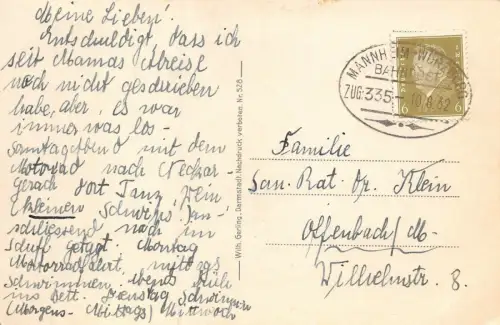 Meine Lieben!
Entschuldigt, dass ich
seit Mamas Abreise
noch nicht geschrieben
habe, aber, es war
immer was los-
Sonntagabend mit dem
Motorrad nach Neckar-
Gerach dort Tanz, Wein
(kleinen Schwips) An-
schliessend noch im
Schiff getagt. Montag
Motorradfahrt, mittags
schwimmen. Abends früh
ins Bett. Dienstag Schwimmen
(Morgens-Mittags) Mittwoch
Wilh. Gerling, Darmstadt. Nachdruck verboten. Nr. 528
MANNHEIM-WÜRZBURG
BAHNPOST
ZUG:335
10.8.32
6 6
Familie
San. Rat. Dr. Klein
Offenbach/M-
Wilhelmstr. 8.